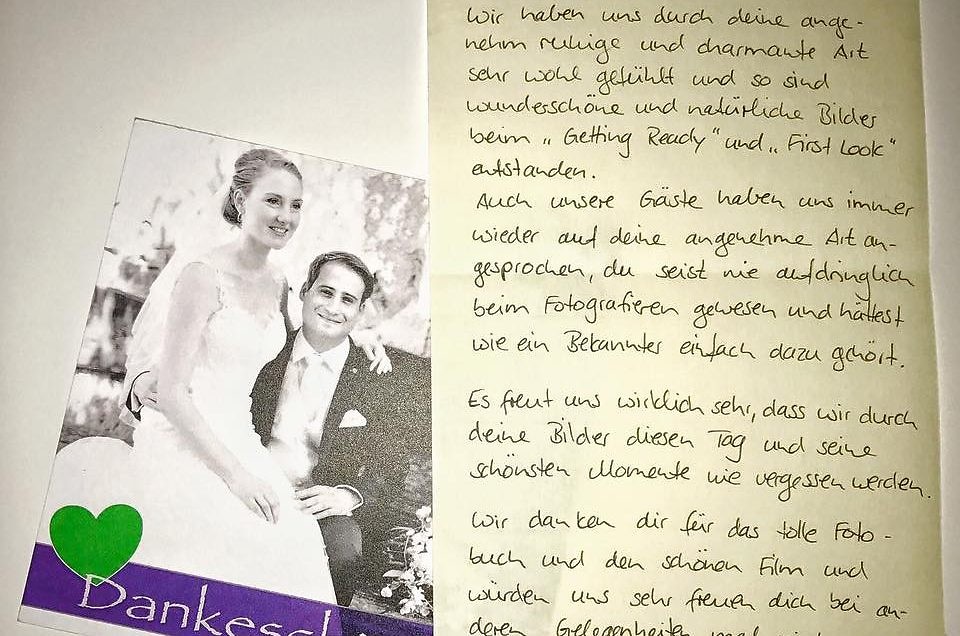 Dankesch
Wir haben uns durch deine ange-
nehm ruhige und charmante Art
sehr wohl gefühlt und so sind
wunderschöne und natürliche Bilder
beim „Getting Ready" und „First Look"
entstanden.
Auch unsere Gäste haben uns immer
wieder auf deine angenehme Art an-
gesprochen, du seist nie aufdringlich
beim Fotografieren gewesen und hättest
wie ein Bekannter einfach dazu gehört.
Es freut uns wirklich sehr, dass wir durch
deine Bilder diesen Tag und seine
schönsten Momente nie vergessen werden.
Wir danken dir für das tolle Foto-
buch und den schönen Film und
würden uns sehr freuen dich bei an-
deren Gelegenheiten